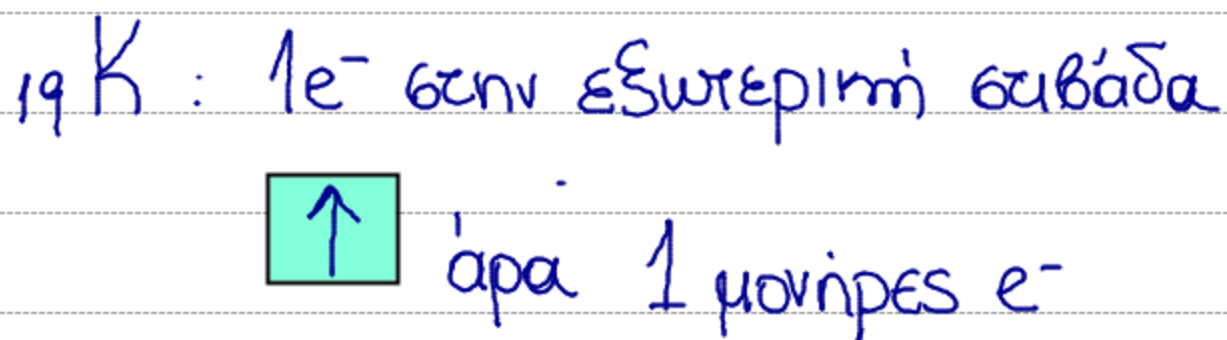 ₁₉K : 1e⁻ στην εξωτερική στιβάδα
↑ άρα 1 μονήρες e⁻